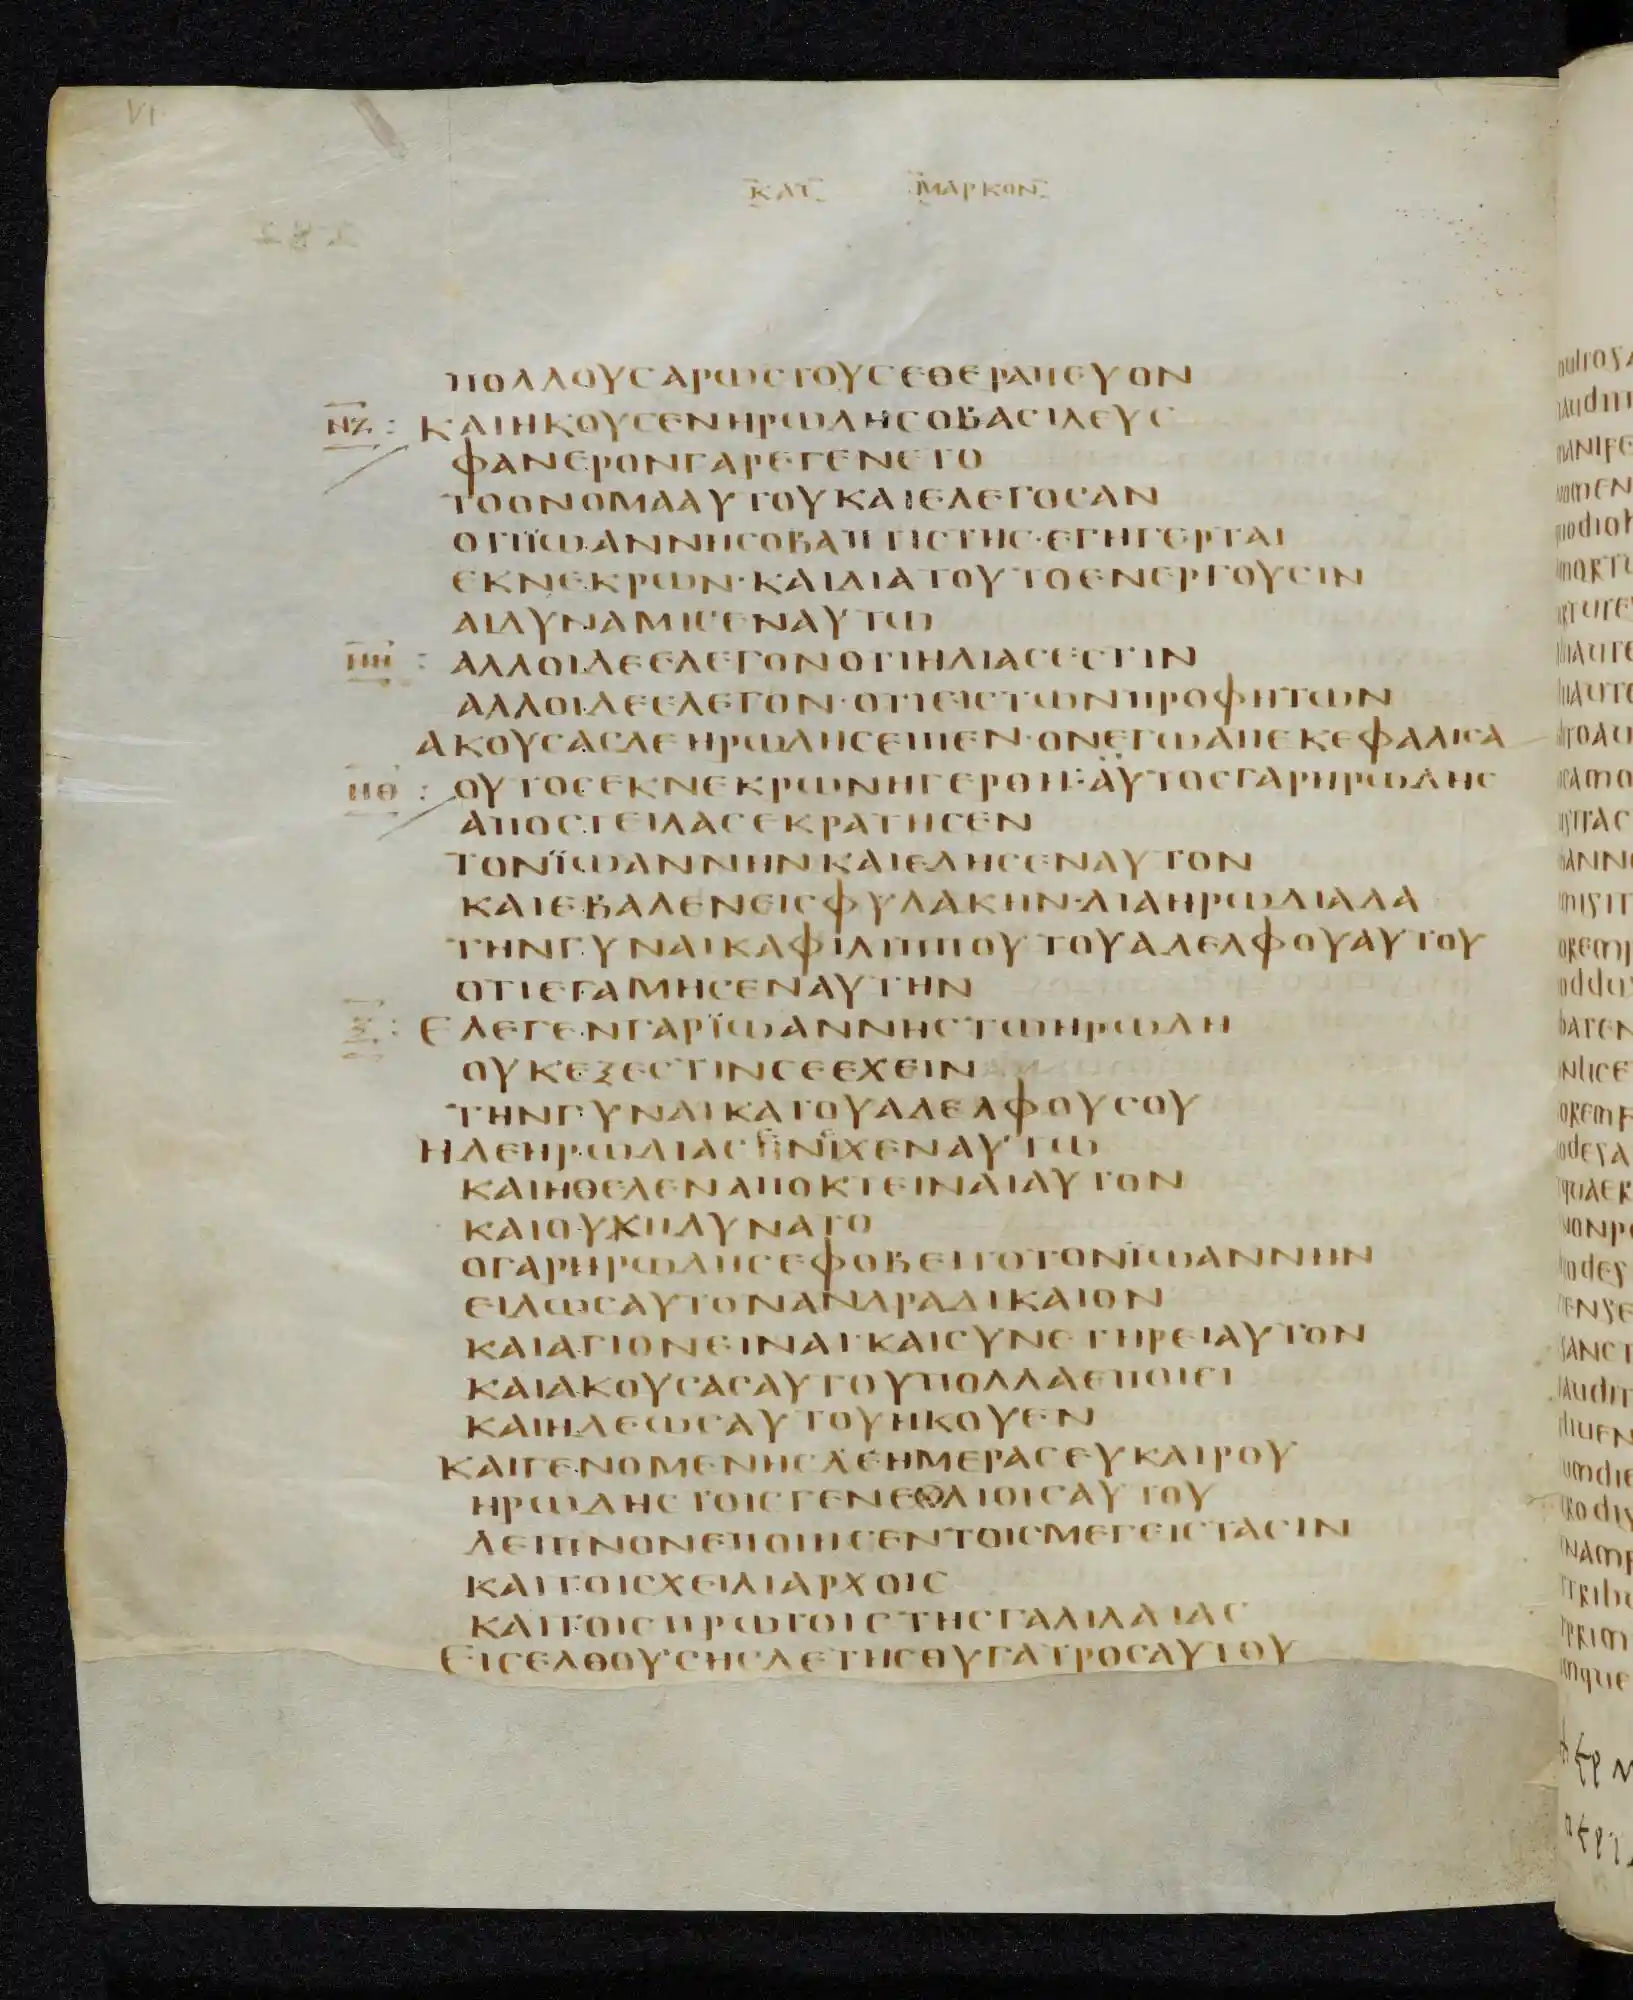 VI
ΚΑΤ ΜΑΡΚΟΝ
ΠΟΛΛΟΥΣΑΡΩΣΤΟΥΣΕΘΕΡΑΠΕΥΟΝ
ΝΖ : ΚΑΙΗΚΟΥΣΕΝΗΡΩΔΗΣΟΒΑΣΙΛΕΥΣ
ΦΑΝΕΡΟΝΓΑΡΕΓΕΝΕΤΟ
ΤΟΟΝΟΜΑΑΥΤΟΥΚΑΙΕΛΕΓΟΣΑΝ
ΟΤΙΪΩΑΝΝΗΣΟΒΑΠΤΙΣΤΗΣ·ΕΓΗΓΕΡΤΑΙ
ΕΚΝΕΚΡΩΝ·ΚΑΙΔΙΑΤΟΥΤΟΕΝΕΡΓΟΥΣΙΝ
ΑΙΔΥΝΑΜΙΣΕΝΑΥΤΩ
ΝΗ : ΑΛΛΟΙΔΕΕΛΕΓΟΝΟΤΙΗΛΙΑΣΕΣΤΙΝ
ΑΛΛΟΙΔΕΕΛΕΓΟΝ·ΟΤΙΕΙΣΤΩΝΠΡΟΦΗΤΩΝ
ΑΚΟΥΣΑΣΔΕΗΡΩΔΗΣΕΙΠΕΝ·ΟΝΕΓΩΑΠΕΚΕΦΑΛΙΣΑ
ΝΘ : ΟΥΤΟΣΕΚΝΕΚΡΩΝΗΓΕΡΘΗ:ΑΥΤΟΣΓΑΡΗΡΩΔΗΣ
ΑΠΟΣΤΕΙΛΑΣΕΚΡΑΤΗΣΕΝ
ΤΟΝΪΩΑΝΝΗΝΚΑΙΕΔΗΣΕΝΑΥΤΟΝ
ΚΑΙΕΒΑΛΕΝΕΙΣΦΥΛΑΚΗΝ·ΔΙΑΗΡΩΔΙΑΔΑ
ΤΗΝΓΥΝΑΙΚΑΦΙΛΙΠΠΟΥΤΟΥΑΔΕΛΦΟΥΑΥΤΟΥ
ΟΤΙΕΓΑΜΗΣΕΝΑΥΤΗΝ
Ξ : ΕΛΕΓΕΝΓΑΡΪΩΑΝΝΗΣΤΩΗΡΩΔΗ
ΟΥΚΕΞΕΣΤΙΝΣΕΕΧΕΙΝ
ΤΗΝΓΥΝΑΙΚΑΤΟΥΑΔΕΛΦΟΥΣΟΥ
ΗΔΕΗΡΩΔΙΑΣΕΝΙΧΕΝΑΥΤΩ
ΚΑΙΗΘΕΛΕΝΑΠΟΚΤΕΙΝΑΙΑΥΤΟΝ
ΚΑΙΟΥΚΗΔΥΝΑΤΟ
ΟΓΑΡΗΡΩΔΗΣΕΦΟΒΕΙΤΟΤΟΝΪΩΑΝΝΗΝ
ΕΙΔΩΣΑΥΤΟΝΑΝΔΡΑΔΙΚΑΙΟΝ
ΚΑΙΑΓΙΟΝΕΙΝΑΙ·ΚΑΙΣΥΝΕΤΗΡΕΙΑΥΤΟΝ
ΚΑΙΑΚΟΥΣΑΣΑΥΤΟΥΠΟΛΛΑΕΠΟΙΕΙ
ΚΑΙΗΔΕΩΣΑΥΤΟΥΗΚΟΥΕΝ
ΚΑΙΓΕΝΟΜΕΝΗΣΔΕΗΜΕΡΑΣΕΥΚΑΙΡΟΥ
ΗΡΩΔΗΣΤΟΙΣΓΕΝΕΘΛΙΟΙΣΑΥΤΟΥ
ΔΕΙΠΝΟΝΕΠΟΙΗΣΕΝΤΟΙΣΜΕΓΕΙΣΤΑΣΙΝ
ΚΑΙΤΟΙΣΧΕΙΛΙΑΡΧΟΙΣ
ΚΑΙΤΟΙΣΠΡΩΤΟΙΣΤΗΣΓΑΛΙΛΑΙΑΣ
ΕΙΣΕΛΘΟΥΣΗΣΔΕΤΗΣΘΥΓΑΤΡΟΣΑΥΤΟΥ